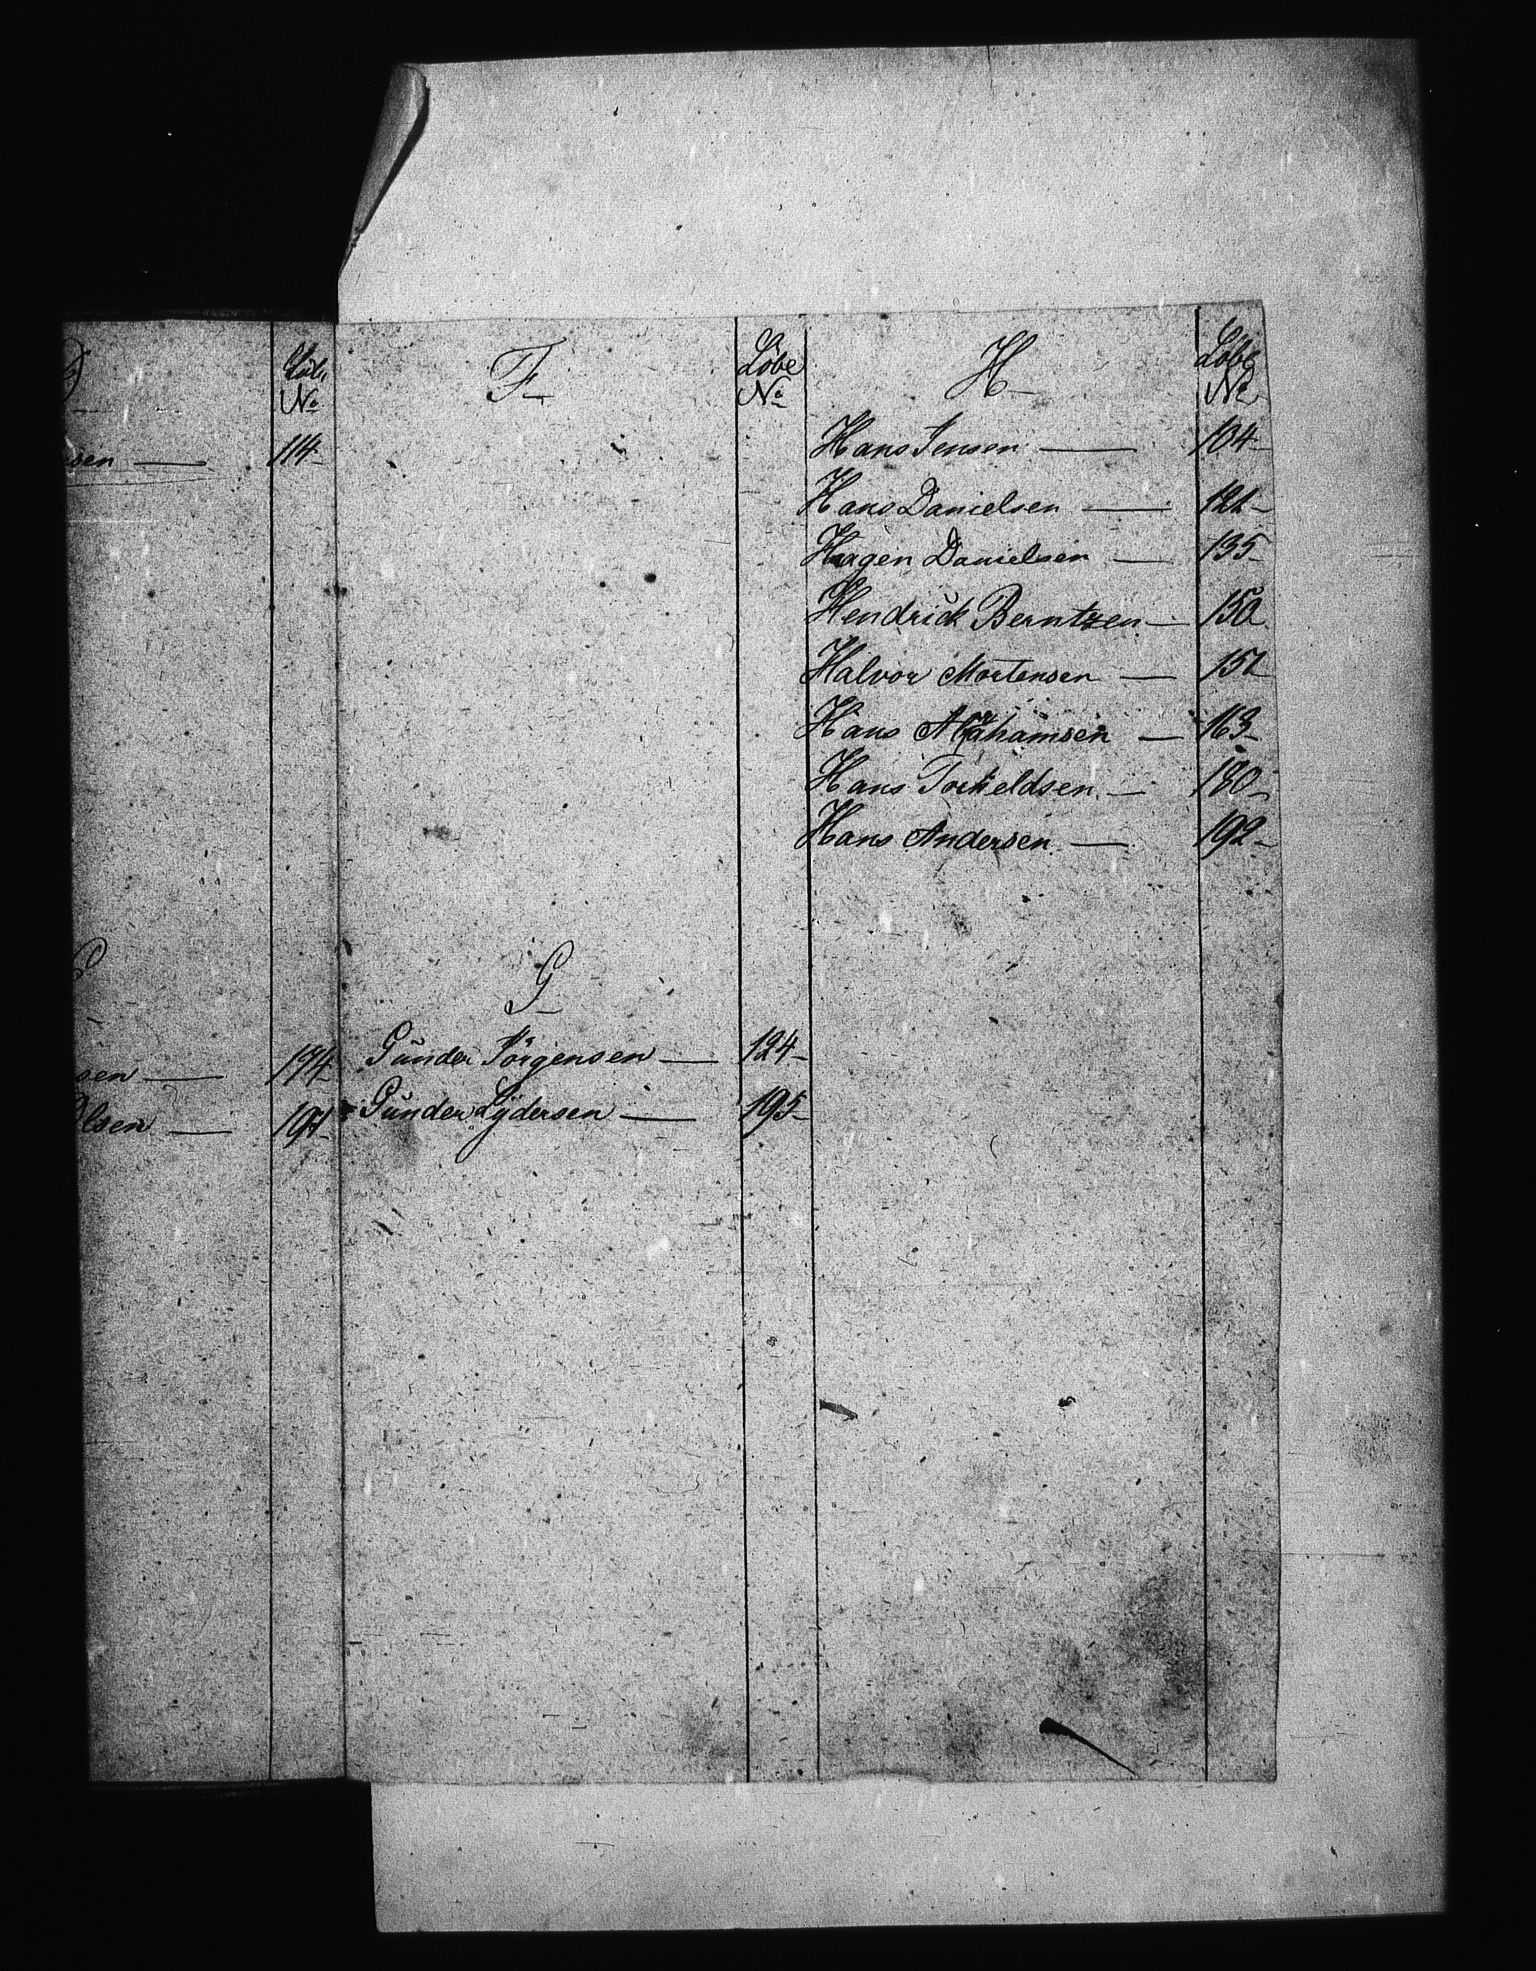 Löbe
No
114
sen
sen 174
Olsen
F
Löbe
No
G
Gunder Jörgensen 124
Gunder Lydersen 195
H
Löbe
No
Hans Jensen 104
Hans Danielsen 121
Hagen Danielsen 135
Hendrick Berntzen 150
Halvor Mortensen 151
Hans Abrahamsen 163
Hans Torkeldsen 180
Hans Andersen 192